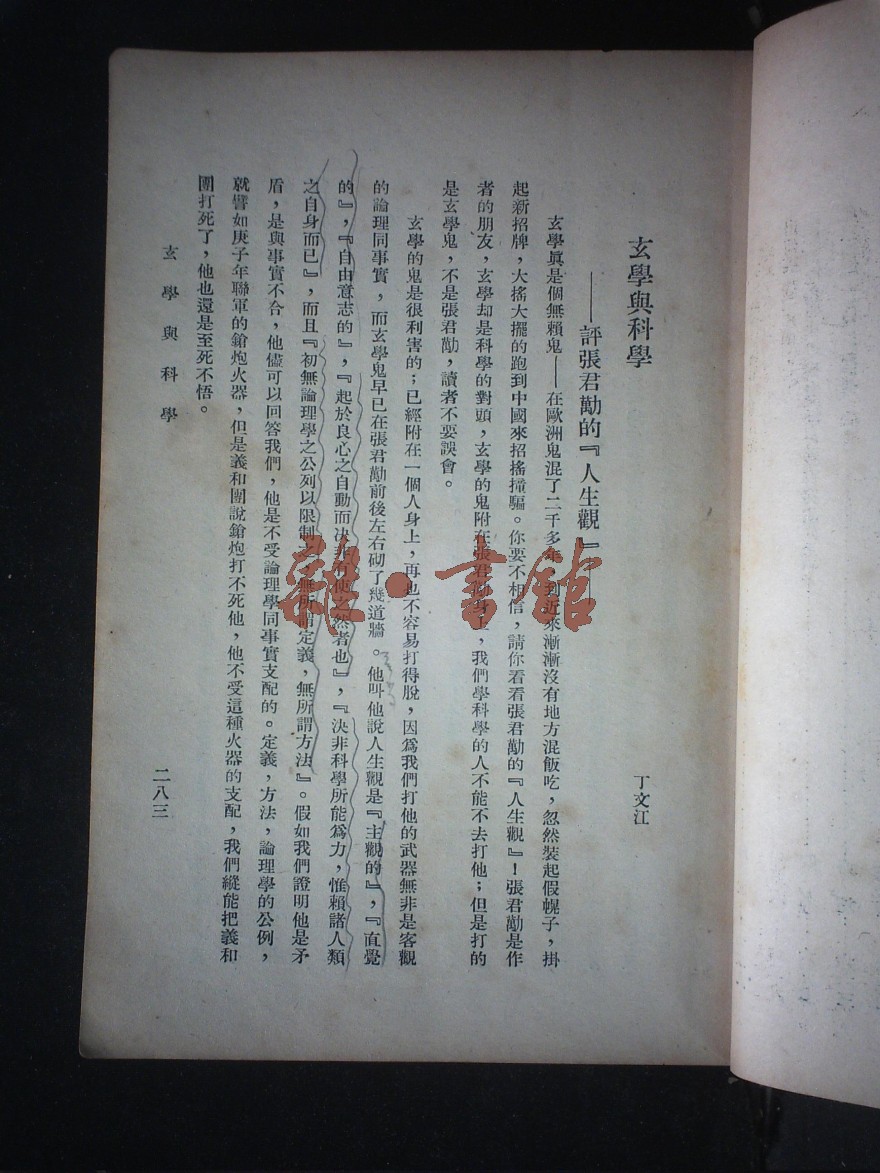 玄學與科學
——評張君勱的『人生觀』——
丁文江
玄學眞是個無賴鬼——在歐洲鬼混了二千多年，到近來漸漸沒有地方混飯吃，忽然裝起假幌子，掛
起新招牌，大搖大擺的跑到中國來招搖撞騙。你要不相信，請你看看張君勱的『人生觀』！張君勱是作
者的朋友，玄學却是科學的對頭，玄學的鬼附在張君勱身上，我們學科學的人不能不去打他；但是打的
是玄學鬼，不是張君勱，讀者不要誤會。
玄學的鬼是很利害的；已經附在一個人身上，再也不容易打得脫，因爲我們打他的武器無非是客觀
的論理同事實，而玄學鬼早已在張君勱前後左右砌了幾道牆。他叫他說人生觀是『主觀的』，『直覺
的』，『自由意志的』，『起於良心之自動而決非有使之然者也』，『決非科學所能爲力，惟賴諸人類
之自身而已』，而且『初無論理學之公列以限制之，無所謂定義，無所謂方法』。假如我們證明他是矛
盾，是與事實不合，他儘可以回答我們，他是不受論理學同事實支配的。定義，方法，論理學的公例，
就譬如庚子年聯軍的鎗炮火器，但是義和團說鎗炮打不死他，他不受這種火器的支配，我們縱能把義和
團打死了，他也還是至死不悟。
玄學與科學
二八三
雜·書館